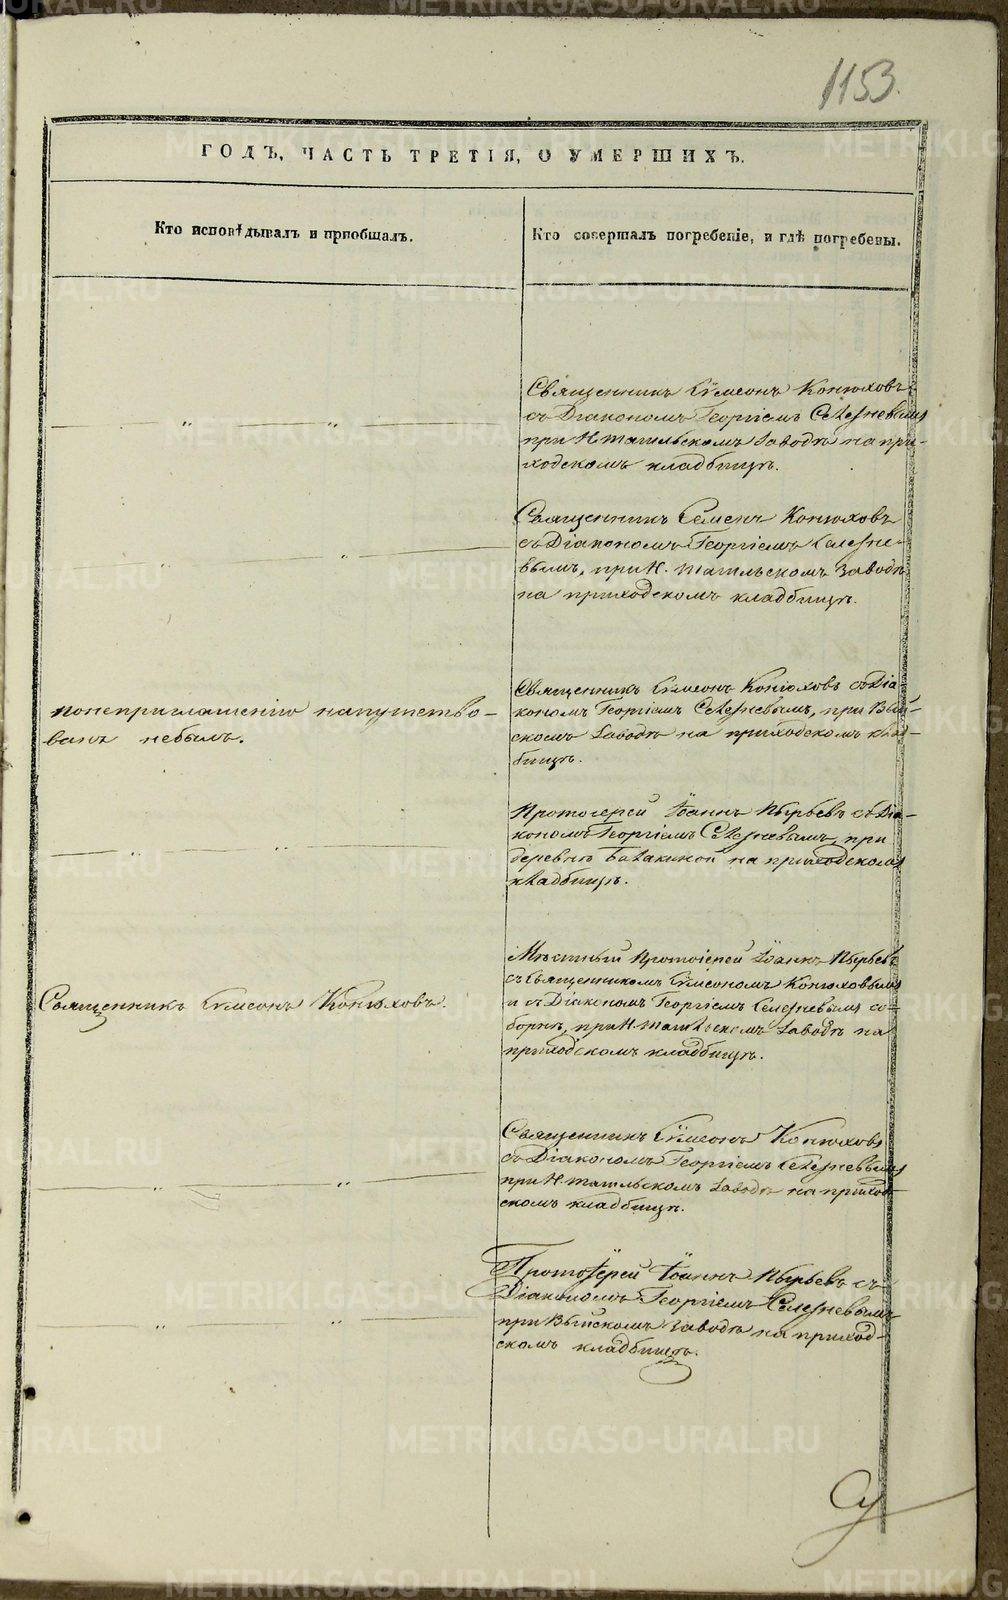 1153.
ГОДЪ, ЧАСТЬ ТРЕТІЯ, О УМЕРШИХЪ.
Кто исповѣдывалъ и пріобщалъ.
Кто совершалъ погребеніе, и гдѣ погребены.
Священникъ Сѵмеонъ Конюховъ
съ Діакономъ Георгіемъ Селезневымъ
при Н. Тагильскомъ Заводѣ на при-
ходскомъ кладбищѣ.
Священникъ Семенъ Конюховъ
съ Діакономъ Георгіемъ Селезне-
вымъ, при Н. Тагильскомъ Заводѣ
на приходскомъ кладбищѣ.
понеприглашенію напутство-
ванъ небылъ.
Священникъ Сѵмеонъ Конюховъ съ Діа-
кономъ Георгіемъ Селезневымъ, при Вый-
скомъ Заводѣ на приходскомъ клад-
бищѣ.
Протоіерей Іоаннъ Пырьевъ съ Діа-
кономъ Георгіемъ Селезневымъ, при
деревнѣ Балакиной на приходскомъ
кладбищѣ.
Священникъ Сѵмеонъ Конюховъ.
Мѣстный Протоіерей Іоаннъ Пырьевъ
съ Священникомъ Сѵмеономъ Конюховымъ
и съ Діакономъ Георгіемъ Селезневымъ со-
борнѣ, при Н. Тагильскомъ Заводѣ на
приходскомъ кладбищѣ.
Священникъ Сѵмеонъ Конюховъ
съ Діакономъ Георгіемъ Селезневымъ
при Н. Тагильскомъ Заводѣ на приход-
скомъ кладбищѣ.
Протоіерей Іоаннъ Пырьевъ съ
Діакономъ Георгіемъ Селезневымъ
при Выйскомъ Заводѣ на приход-
скомъ кладбищѣ.
METRIKI.GASO-URAL.RU